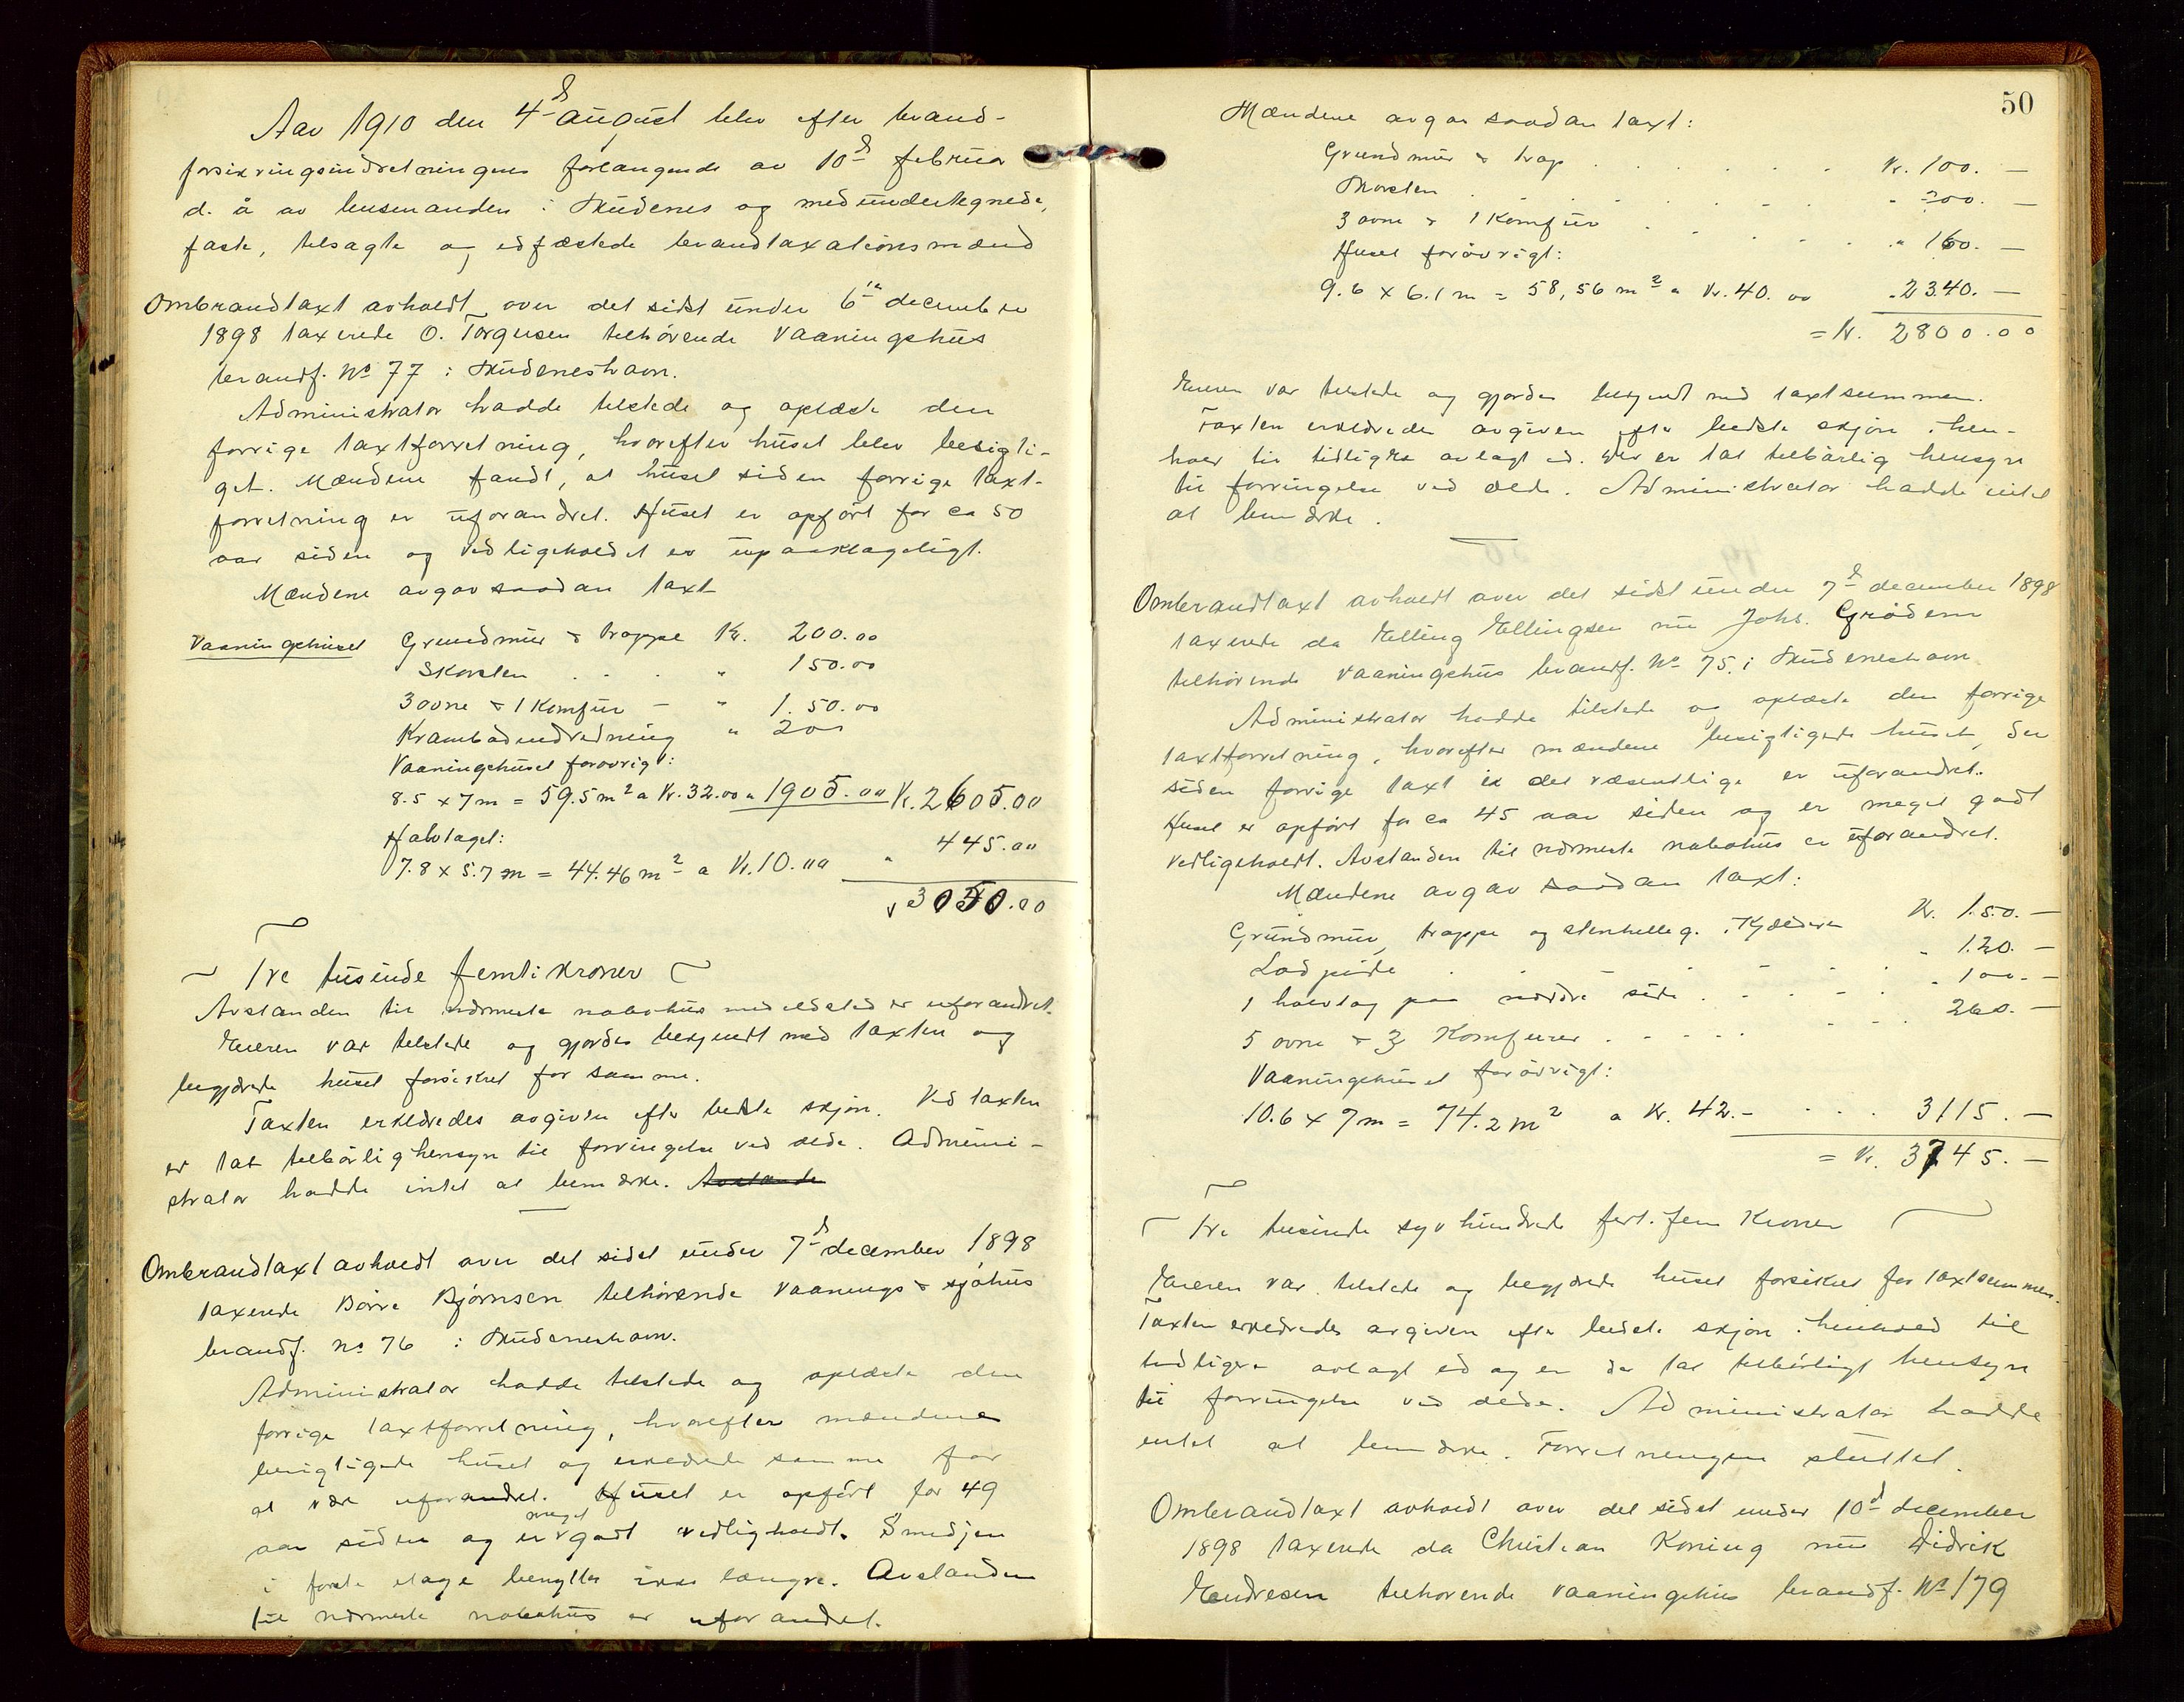 Aar 1910 den 4d august blev efter brand-
forsikringsindretningens forlangende av 10d februar
d. å av lensmanden i Skudenes og medundertegnede,
faste, tilsagte og edfæstede brandtaxationsmænd
Ombrandtaxt avholdt over det sidst under 6te december
1898 taxerede O. Torgersen tilhörende Vaaningshus
brandf. No 77 i Skudeneshavn.
Administrator hadde tilstede og oplæste den
forrige taxtforretning, hvorefter huset blev besigti-
get. Mændene fandt, at huset siden forrige taxt-
forretning er uforandret. Huset er opfört for ca 50
aar siden og vedligeholdet er upaaklageligt.
Mændene avgav saadan taxt
Vaaningshuset Grundmur & trappe Kr. 200.00
Skorsten . . . " 150.00
3 ovne & 1 Komfur - " 150.00
Krambodindredning " 200
Vaaningshuset forøvrigt:
8.5 x 7 m = 59.5 m2 a Kr. 32.00 " 1905.00 Kr. 2605.00
Halvtaget:
7.8 x 5.7 m = 44.46 m2 a Kr. 10.00 " 445.00
3050.00
Tre tusinde femti kroner
Avstanden til nærmeste nabohus med ildsted er uforandret.
Eieren var tilstede og gjordes bekjendt med taxten og
begjærede huset forsikret for samme.
Taxten erklæredes avgiven efter bedste skjön. Ved taxten
er tat tilbörlig hensyn til forringelse ved ælde. Admini-
strator hadde intet at bemærke. Avstande
Ombrandtaxt avholdt over det sidst under 7d december 1898
taxerede Börre Bjørnsen tilhörende Vaanings & sjöhus
brandf. no 76 i Skudeneshavn.
Administrator hadde tilstede og oplæste den
forrige taxtforretning, hvorefter mændene
besigtigede huset og erklærede samme for
at være uforandret. Huset er opfört for 49
aar siden og er meget godt vedligholdt. Smedjen
i förste etage benyttes ikke længre. Avstanden
til nærmeste nabohus er uforandret.
50
Mændene avgav saadan taxt:
Grundmur & trap . . . . . Kr. 100. —
Skorsten . . . . . " 200. —
3 ovne & 1 Komfur . . . . " 160. —
Huset forövrigt:
9.6 x 6.1 m = 58,56 m2 a Kr. 40.00 " 2340. —
= Kr. 2800.00
Eieren var tilstede og gjordes bekjendt med taxtsummen.
Taxten erklæredes avgiven efter bedste skjön i hen-
hold til tidligre avlagt ed. Der er tat tilbörlig hensyn
til forringelse ved ælde. Administrator hadde intet
at bemærke.
Ombrandtaxt avholdt over det sidst under 7d december 1898
taxerede da Elling Ellingsen nu Johs. Grödem
tilhörende Vaaningshus brandf. No 75 i Skudeneshavn
Administrator hadde tilstede og oplæste den forrige
taxtforretning, hvorefter mændene besigtigede huset, der
siden forrige taxt i det væsentlige er uforandret.
Huset er opfört for ca 45 aar siden og er meget godt
vedligeholdt. Avstanden til nærmeste nabohus er uforandret.
Mændene avgav saadan taxt:
Grundmur, trappe og stenhelleg. i Kjælderen Kr. 150. —
Lodpibe . . . . . " 120. —
1 halvtag paa nordre side . . . . " 100. —
5 ovne & 3 Komfurer . . . . . 260. —
Vaaningshuset forövrigt:
10.6 x 7 m = 74.2 m2 a Kr. 42.- . . . 3115. —
= Kr. 3745. —
Tre tusinde syv hundrede førti fem Kroner
Eieren var tilstede og begjærede huset forsikret for taxtsummen.
Taxten erklæredes avgiven efter bedste skjön i henhold til
tidligere avlagt ed og er der tat tilbörligt hensyn
til forringelse ved ælde. Administrator hadde
intet at bemærke. Forretningen sluttet.
Ombrandtaxt avholdt over det sidst under 10d december
1898 taxerede da Christian Koning nu Didrik
Endresen tilhörende vaaningshus brandf. No 179